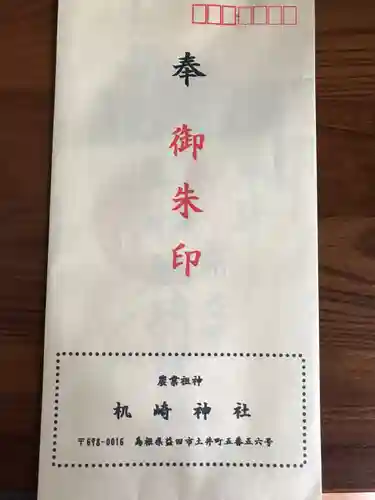 奉
御朱印
農業祖神
机崎神社
〒698-0016 島根県益田市土井町五番五六号